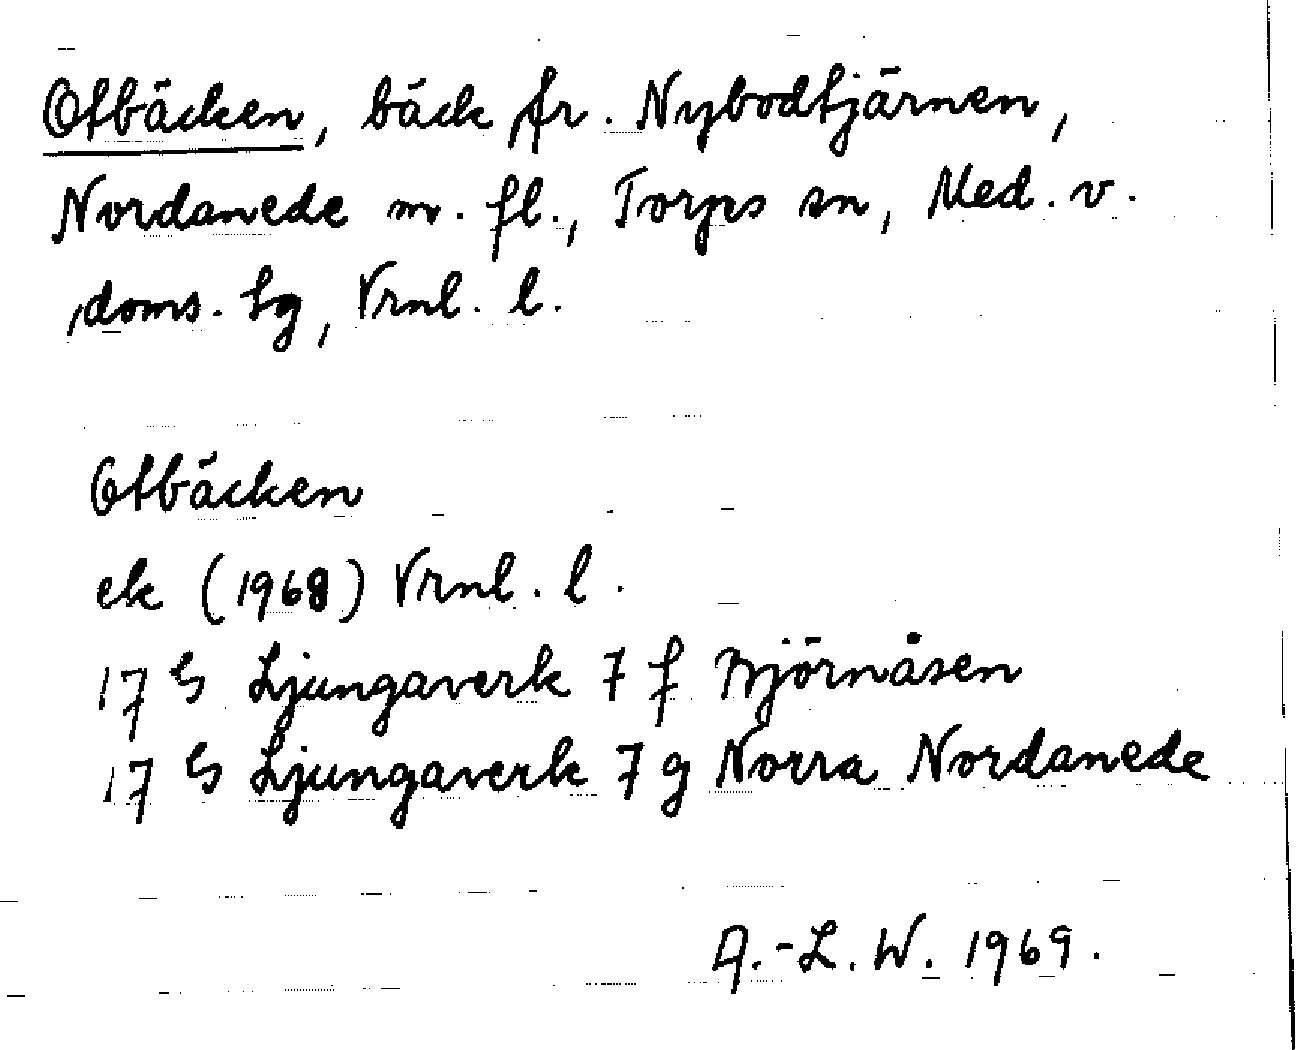 Otbäcken, bäck fr. Nybodtjärnen,
Nordanede m. fl., Torps sn, Med. v.
doms. tg, Vrnl. l.
Otbäcken
ek (1968) Vrnl. l.
17 G Ljungaverk 7 f Björnåsen
17 G Ljungaverk 7 g Norra Nordanede
A.-L. W. 1969.